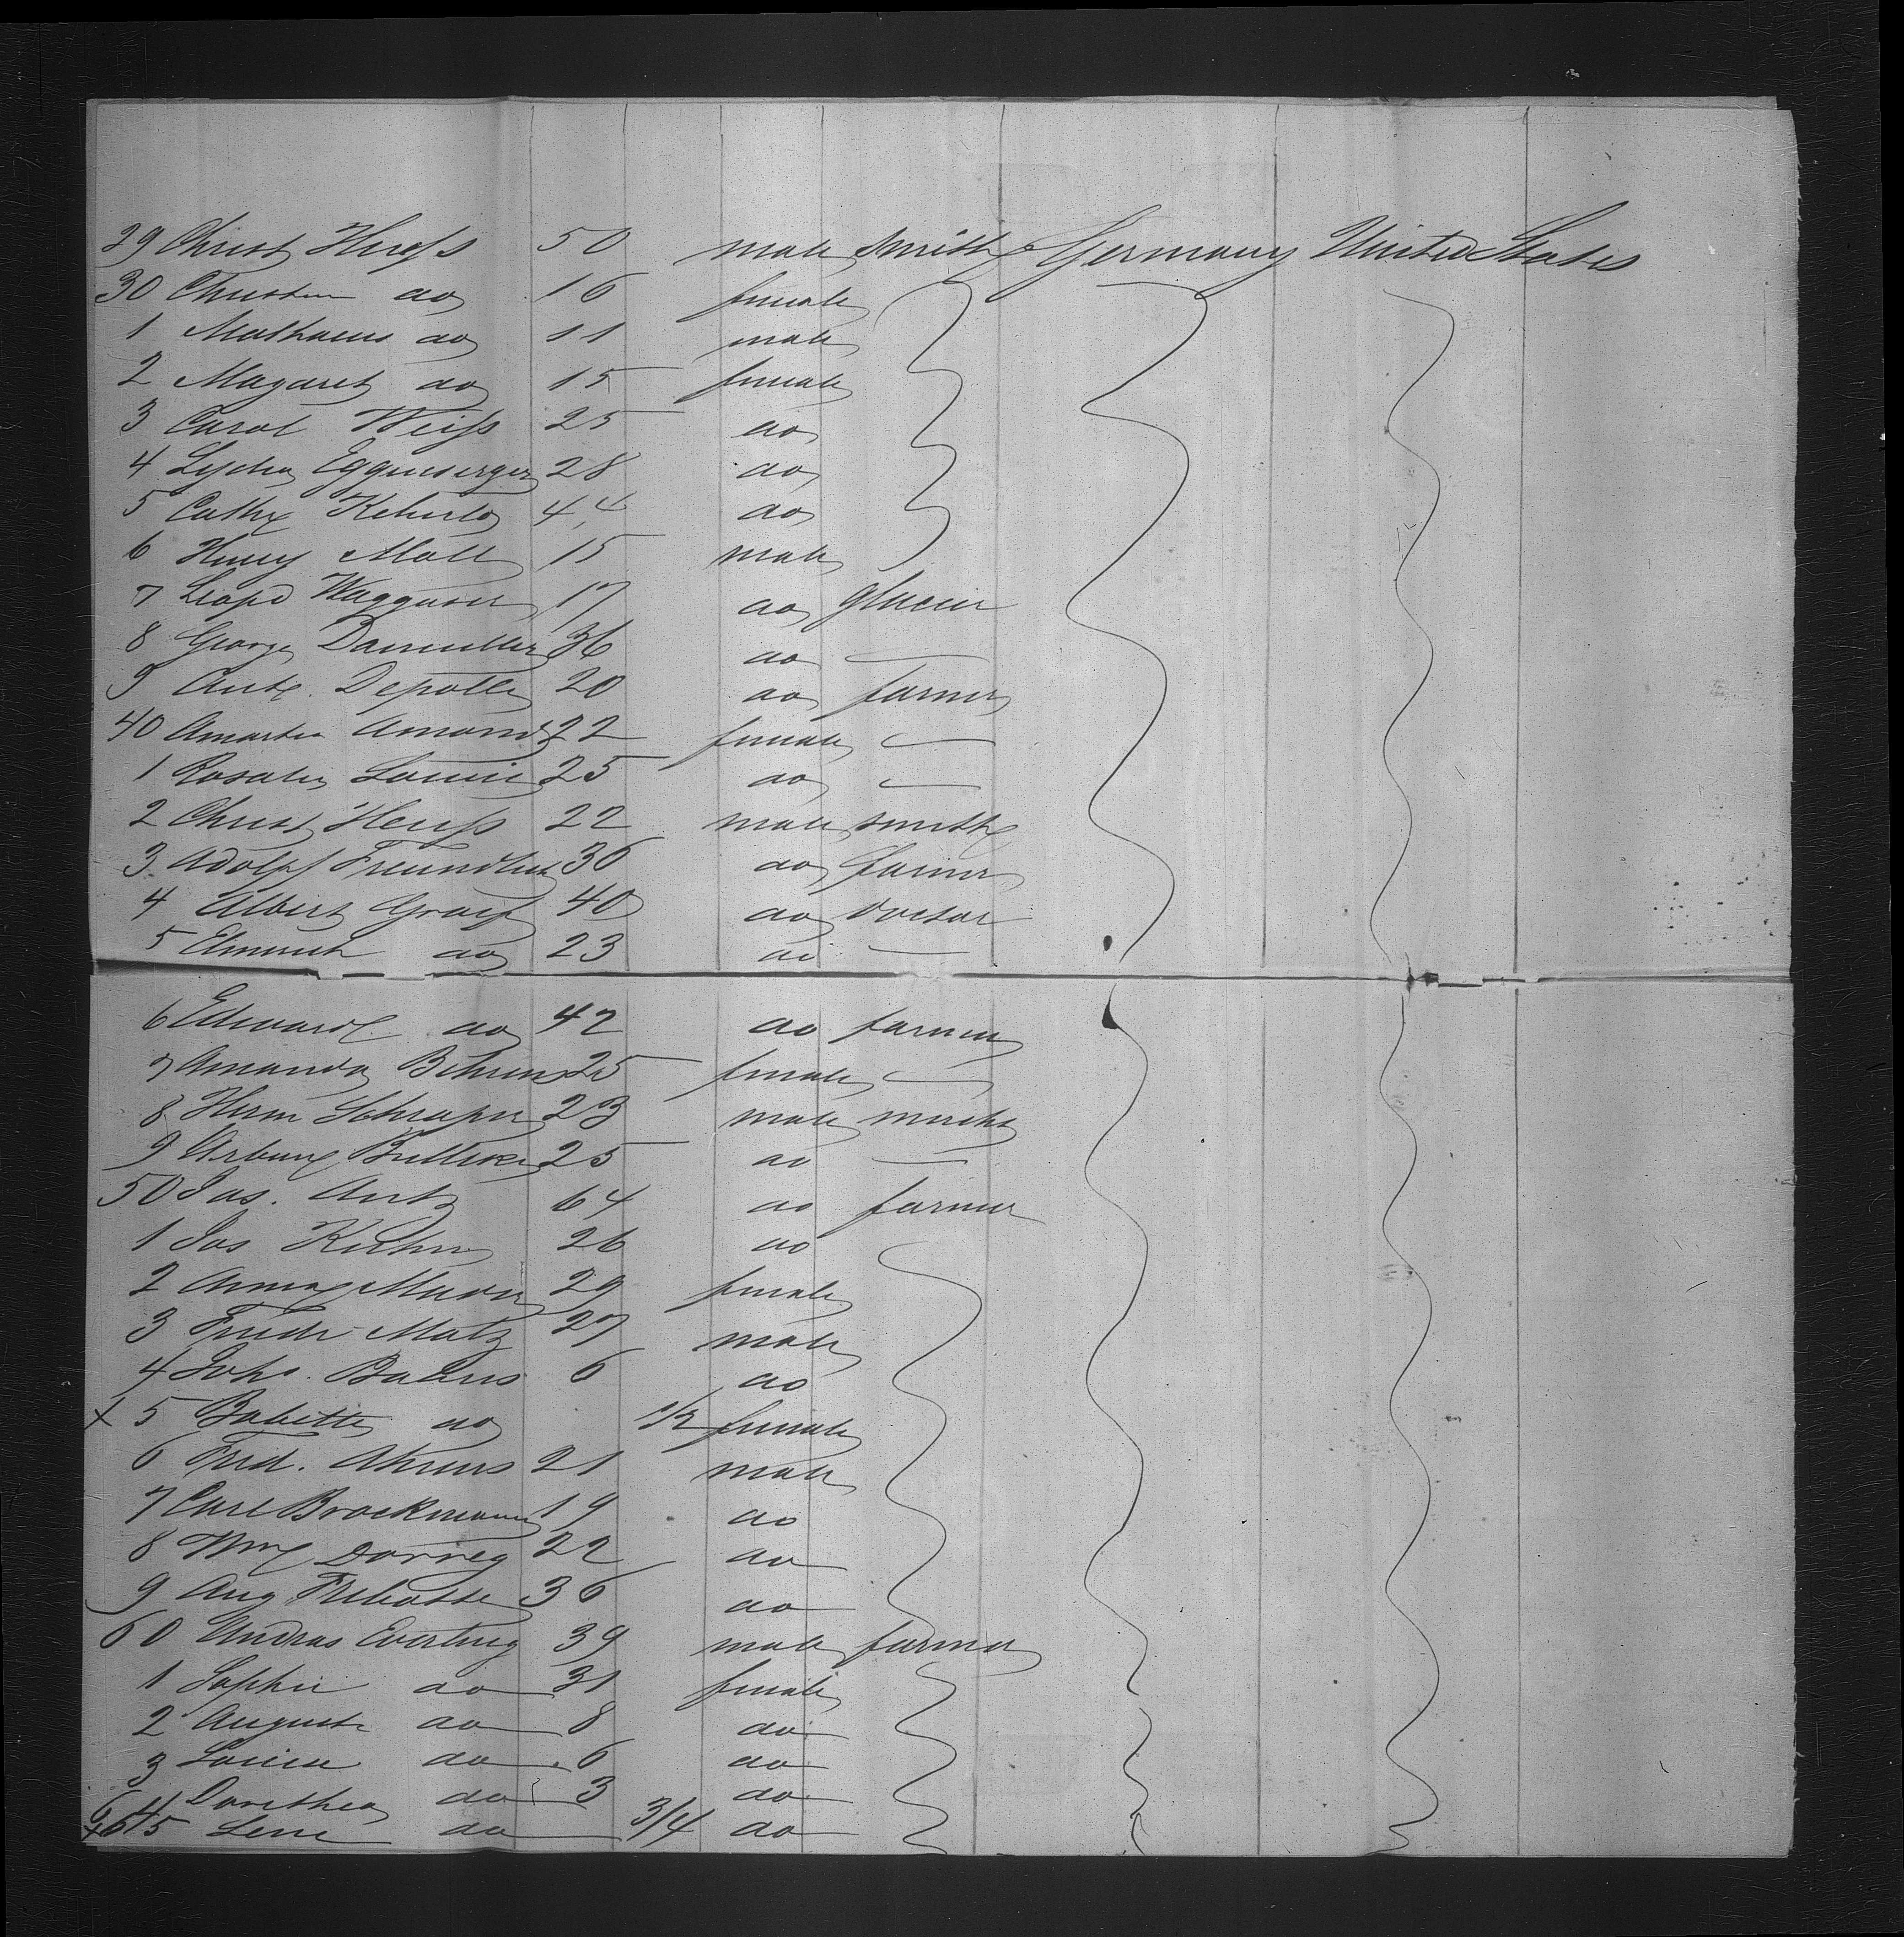 29 Christ Hergss 50 male Smith Germany United States
30 Christine do 16 female
1 Mathaeus do 11 male
2 Magaret do 15 female
3 Carol Weiss 25 do
4 Lydia Eggenserger 28 do
5 Cath 44 do
6 Henry Moll 15 male
7 Leopd Waggoner 17 do glacier
8 George 36 do —
9 Anty. Depolle 20 do farmer
40 Amanda 22 female —
1 Rosalie Louise 25 do —
2 Christ Heuss 22 male smith
3. Adolph Freundlich 36 do farmer
4 Albert Graef 40 do doctor
5 do 23 do —
6 Edward do 42 do farmer
7 Amanda Behrens 25 female —
8 Herm Schraper 23 male mercht
9 25 do —
50 Jos. Antz 64 do farmer
1 Jos Kuhn 26 do
2 Anna 29 female
3 Friedr Motz 27 male
4 Joh. 6 do
x 5 Babette do 1/2 female
6 Fred. Ahrens 21 male
7 Carl Brockmann 19 do
8 Wm Dorreg 22 do
9 Aug 36 do
60 Andras Everting 39 male farmer
1 Sophie do 31 female
2 Auguste do 8 do
3 Louise do 6 do
64 Dorethea do 3 do
x 65 Lene do 3/4 do